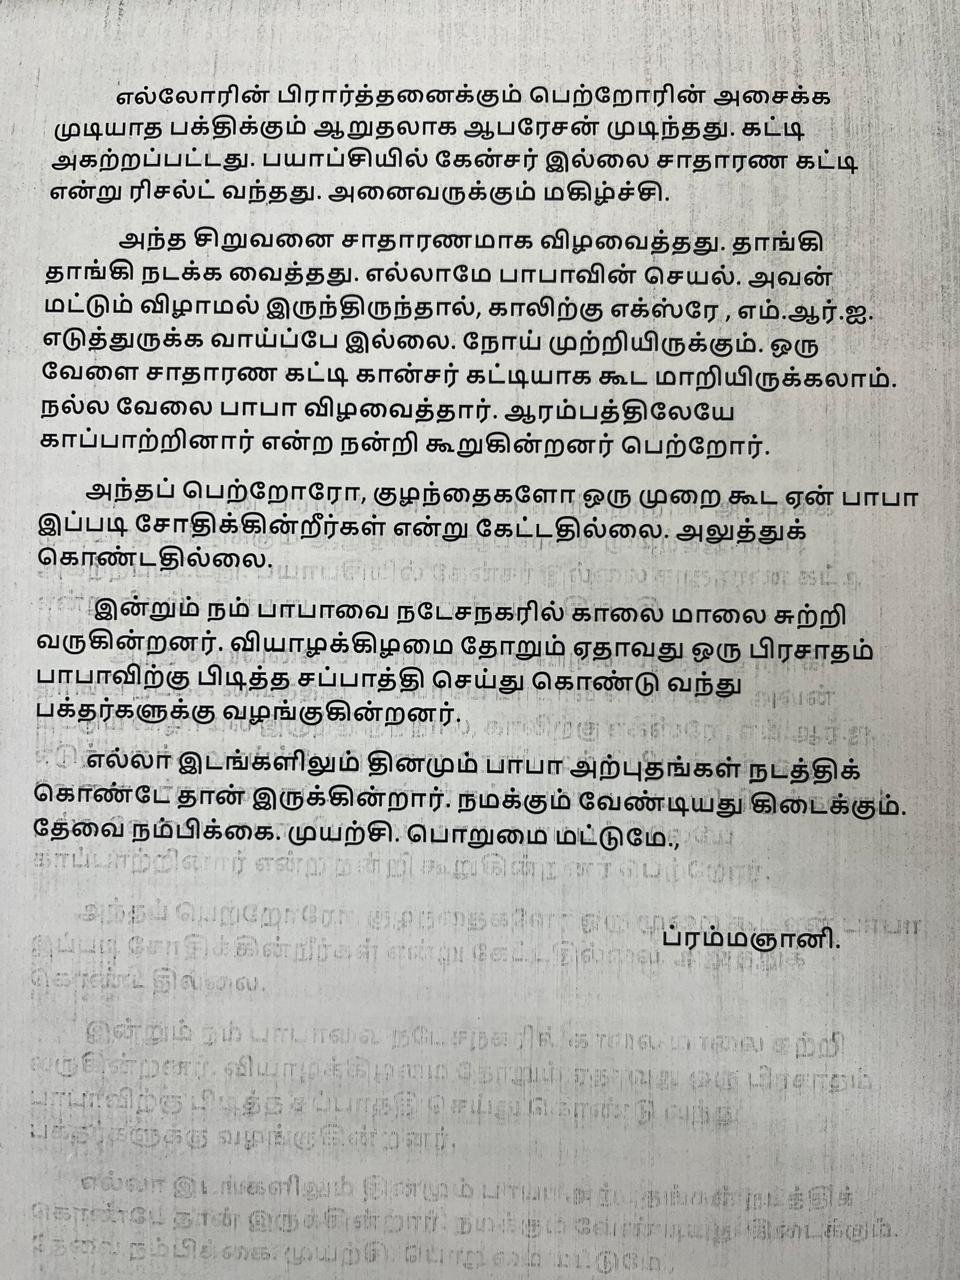 எல்லோரின் பிரார்த்தனைக்கும் பெற்றோரின் அசைக்க
முடியாத பக்திக்கும் ஆறுதலாக ஆபரேசன் முடிந்தது. கட்டி
அகற்றப்பட்டது. பயாப்சியில் கேன்சர் இல்லை சாதாரண கட்டி
என்று ரிசல்ட் வந்தது. அனைவருக்கும் மகிழ்ச்சி.
அந்த சிறுவனை சாதாரணமாக விழவைத்தது. தாங்கி
தாங்கி நடக்க வைத்தது. எல்லாமே பாபாவின் செயல். அவன்
மட்டும் விழாமல் இருந்திருந்தால், காலிற்கு எக்ஸ்ரே , எம்.ஆர்.ஐ.
எடுத்துருக்க வாய்ப்பே இல்லை. நோய் முற்றியிருக்கும். ஒரு
வேளை சாதாரண கட்டி கான்சர் கட்டியாக கூட மாறியிருக்கலாம்.
நல்ல வேலை பாபா விழவைத்தார். ஆரம்பத்திலேயே
காப்பாற்றினார் என்ற நன்றி கூறுகின்றனர் பெற்றோர்.
அந்தப் பெற்றோரோ, குழந்தைகளோ ஒரு முறை கூட ஏன் பாபா
இப்படி சோதிக்கின்றீர்கள் என்று கேட்டதில்லை. அலுத்துக்
கொண்டதில்லை.
இன்றும் நம் பாபாவை நடேசநகரில் காலை மாலை சுற்றி
வருகின்றனர். வியாழக்கிழமை தோறும் ஏதாவது ஒரு பிரசாதம்
பாபாவிற்கு பிடித்த சப்பாத்தி செய்து கொண்டு வந்து
பக்தர்களுக்கு வழங்குகின்றனர்.
எல்லா இடங்களிலும் தினமும் பாபா அற்புதங்கள் நடத்திக்
கொண்டே தான் இருக்கின்றார். நமக்கும் வேண்டியது கிடைக்கும்.
தேவை நம்பிக்கை. முயற்சி. பொறுமை மட்டுமே.,
ப்ரம்மஞானி.